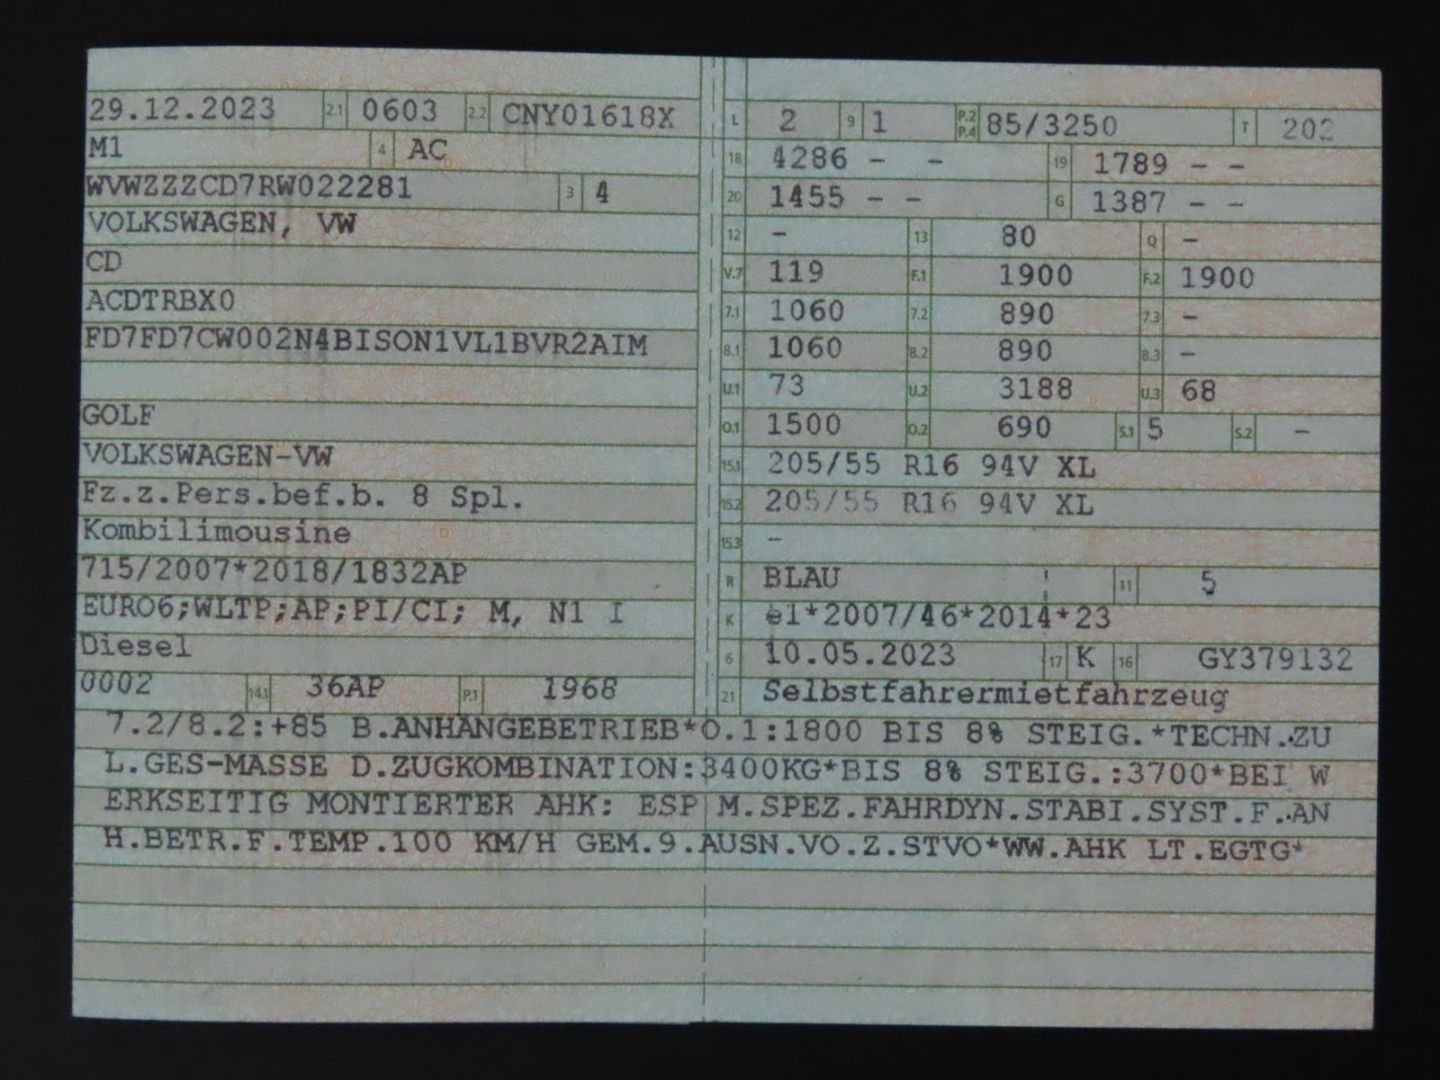 29.12.2023 2.1 0603 2.2 CNY01618X
M1 4 AC
WVWZZZCD7RW022281 3 4
VOLKSWAGEN, VW
CD
ACDTRBX0
FD7FD7CW002N4BISON1VL1BVR2AIM
GOLF
VOLKSWAGEN-VW
Fz.z.Pers.bef.b. 8 Spl.
Kombilimousine
715/2007*2018/1832AP
EURO6;WLTP;AP;PI/CI; M, N1 I
Diesel
0002 14.1 36AP P.1 1968
L 2 9 1 P.2 P.4 85/3250 T 202
18 4286 - - 19 1789 - -
20 1455 - - G 1387 - -
12 - 13 80 Q -
V.7 119 F.1 1900 F.2 1900
7.1 1060 7.2 890 7.3 -
8.1 1060 8.2 890 8.3 -
U.1 73 U.2 3188 U.3 68
O.1 1500 O.2 690 S.1 5 S.2 -
15.1 205/55 R16 94V XL
15.2 205/55 R16 94V XL
15.3 -
R BLAU 11 5
K e1*2007/46*2014*23
6 10.05.2023 17 K 16 GY379132
21 Selbstfahrermietfahrzeug
7.2/8.2:+85 B.ANHÄNGEBETRIEB*O.1:1800 BIS 8% STEIG.*TECHN.ZU
L.GES-MASSE D.ZUGKOMBINATION:3400KG*BIS 8% STEIG.:3700*BEI W
ERKSEITIG MONTIERTER AHK: ESP M.SPEZ.FAHRDYN.STABI.SYST.F.AN
H.BETR.F.TEMP.100 KM/H GEM.9.AUSN.VO.Z.STVO*WW.AHK LT.EGTG*